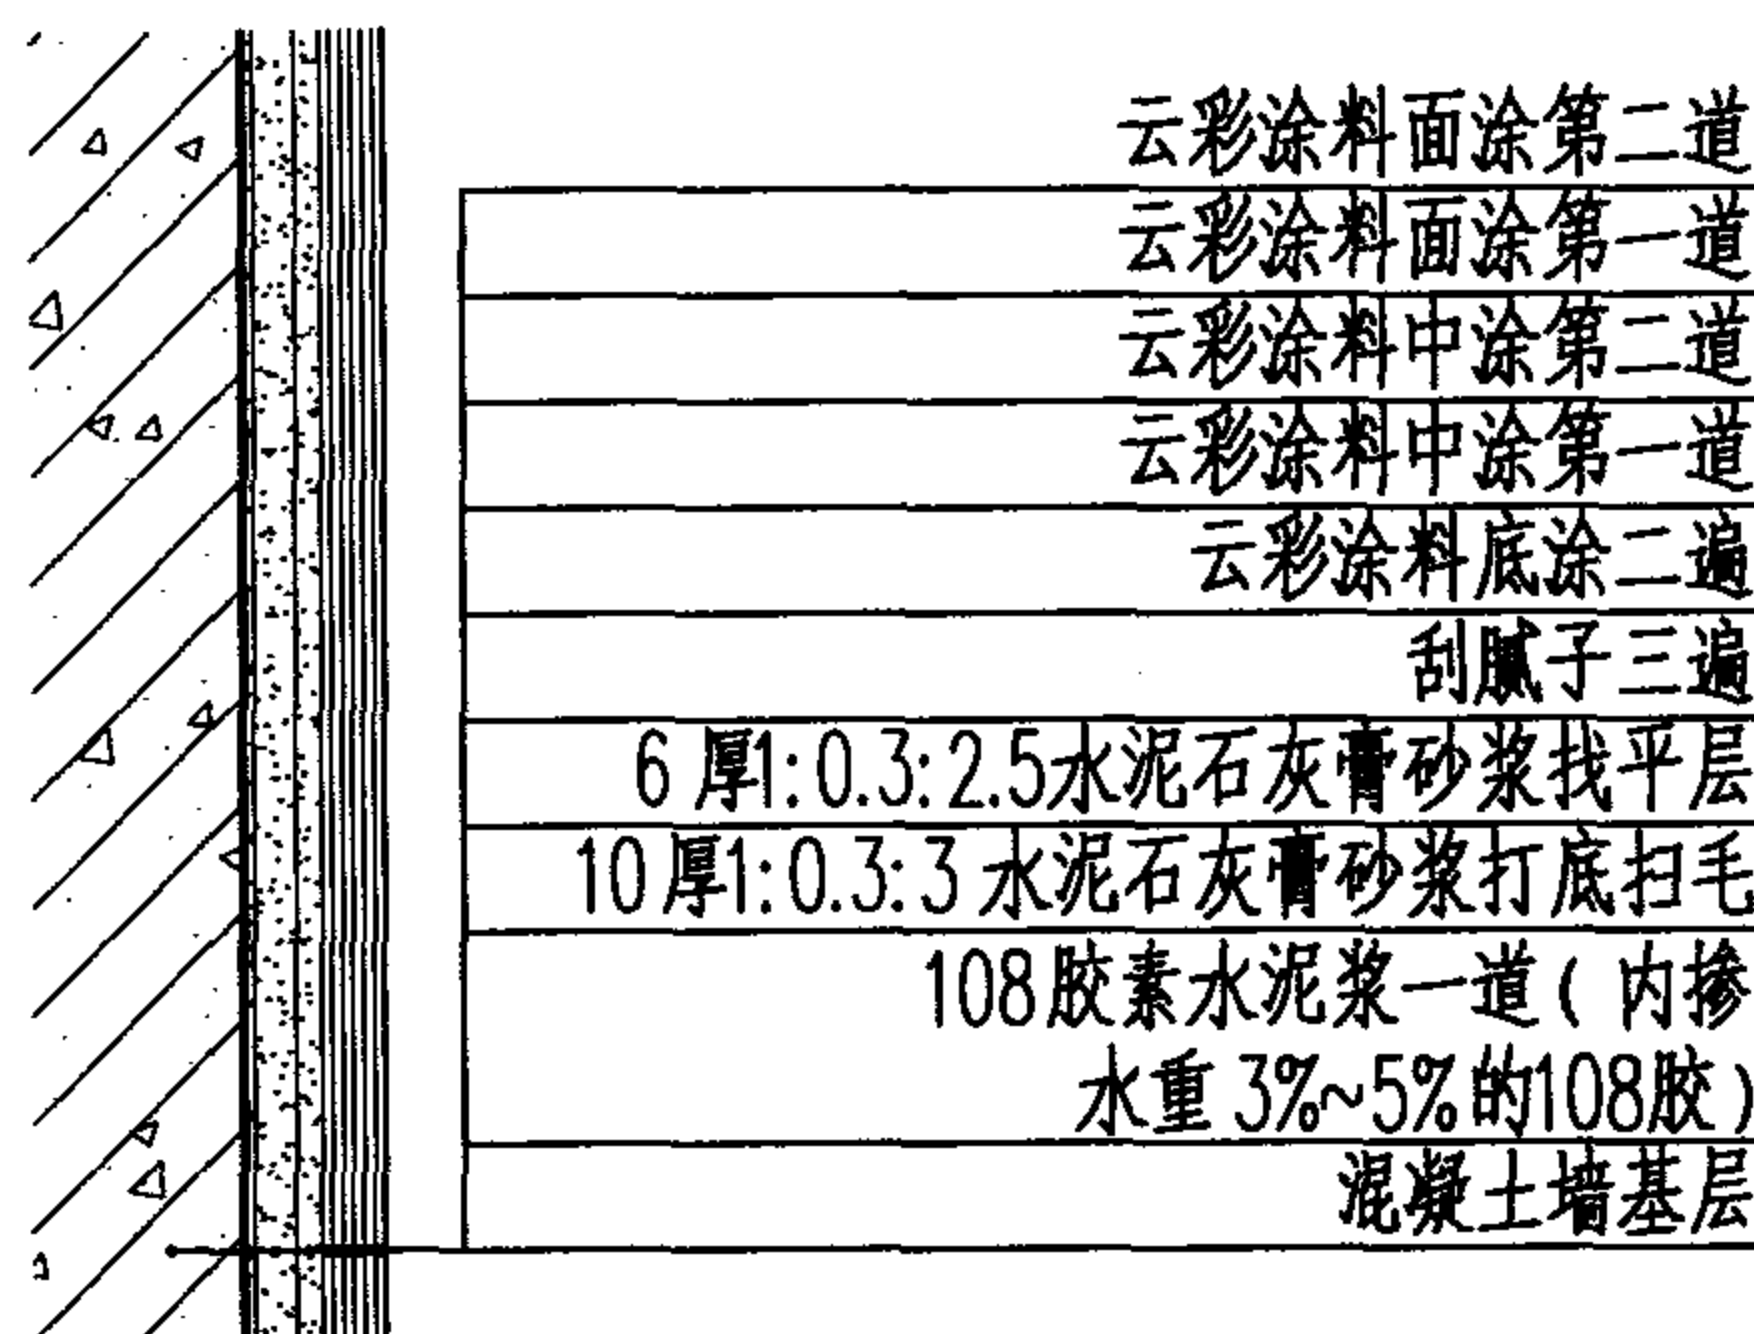 云彩涂料面涂第二道
云彩涂料面涂第一道
云彩涂料中涂第二道
云彩涂料中涂第一道
云彩涂料底涂二遍
刮腻子三遍
6厚1:0.3:2.5水泥石灰膏砂浆找平层
10厚1:0.3:3水泥石灰膏砂浆打底扫毛
108胶素水泥浆一道(内掺
水重3%~5%的108胶)
混凝土墙基层